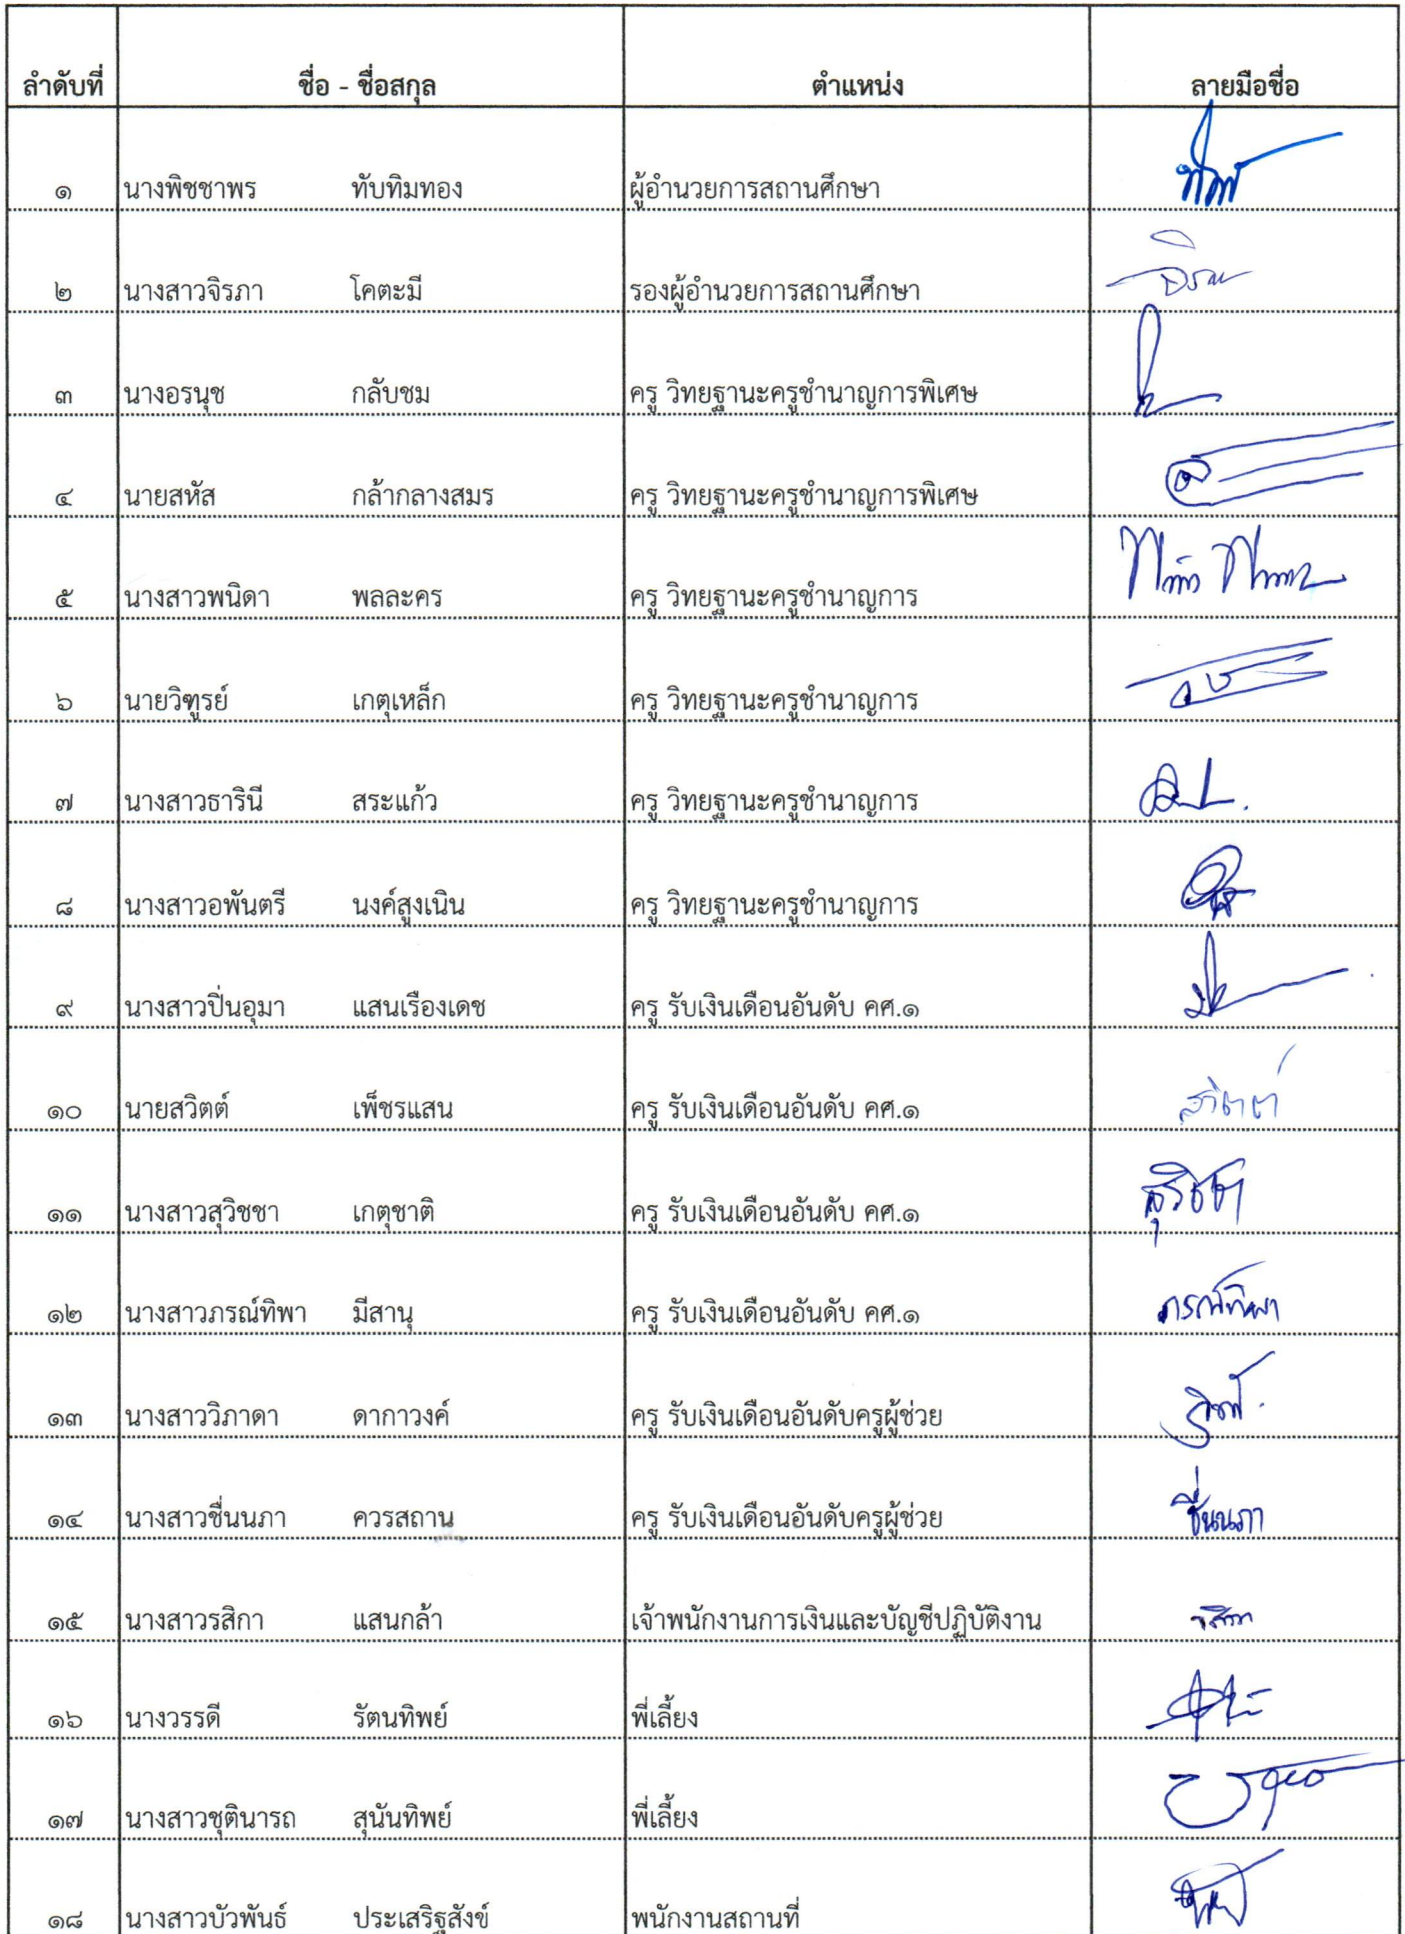 ลำดับที่ ชื่อ - ชื่อสกุล ตำแหน่ง ลายมือชื่อ
๑ นางพิชชาพร ทับทิมทอง ผู้อำนวยการสถานศึกษา
๒ นางสาวจิรภา โคตะมี รองผู้อำนวยการสถานศึกษา
๓ นางอรนุช กลับชม ครู วิทยฐานะครูชำนาญการพิเศษ
๔ นายสหัส กล้ากลางสมร ครู วิทยฐานะครูชำนาญการพิเศษ
๕ นางสาวพนิดา พลละคร ครู วิทยฐานะครูชำนาญการ
๖ นายวิฑูรย์ เกตุเหล็ก ครู วิทยฐานะครูชำนาญการ
๗ นางสาวธารินี สระแก้ว ครู วิทยฐานะครูชำนาญการ
๘ นางสาวอพันตรี นงค์สูงเนิน ครู วิทยฐานะครูชำนาญการ
๙ นางสาวปิ่นอุมา แสนเรืองเดช ครู รับเงินเดือนอันดับ คศ.๑
๑๐ นายสวิตต์ เพ็ชรแสน ครู รับเงินเดือนอันดับ คศ.๑ สวิตต์
๑๑ นางสาวสุวิชชา เกตุชาติ ครู รับเงินเดือนอันดับ คศ.๑ สุวิชชา
๑๒ นางสาวภรณ์ทิพา มีสานุ ครู รับเงินเดือนอันดับ คศ.๑ ภรณ์ทิพา
๑๓ นางสาววิภาดา ดากาวงค์ ครู รับเงินเดือนอันดับครูผู้ช่วย
๑๔ นางสาวชื่นนภา ควรสถาน ครู รับเงินเดือนอันดับครูผู้ช่วย ชื่นนภา
๑๕ นางสาวรสิกา แสนกล้า เจ้าพนักงานการเงินและบัญชีปฏิบัติงาน รสิกา
๑๖ นางวรรดี รัตนทิพย์ พี่เลี้ยง
๑๗ นางสาวชุตินารถ สุนันทิพย์ พี่เลี้ยง
๑๘ นางสาวบัวพันธ์ ประเสริฐสังข์ พนักงานสถานที่